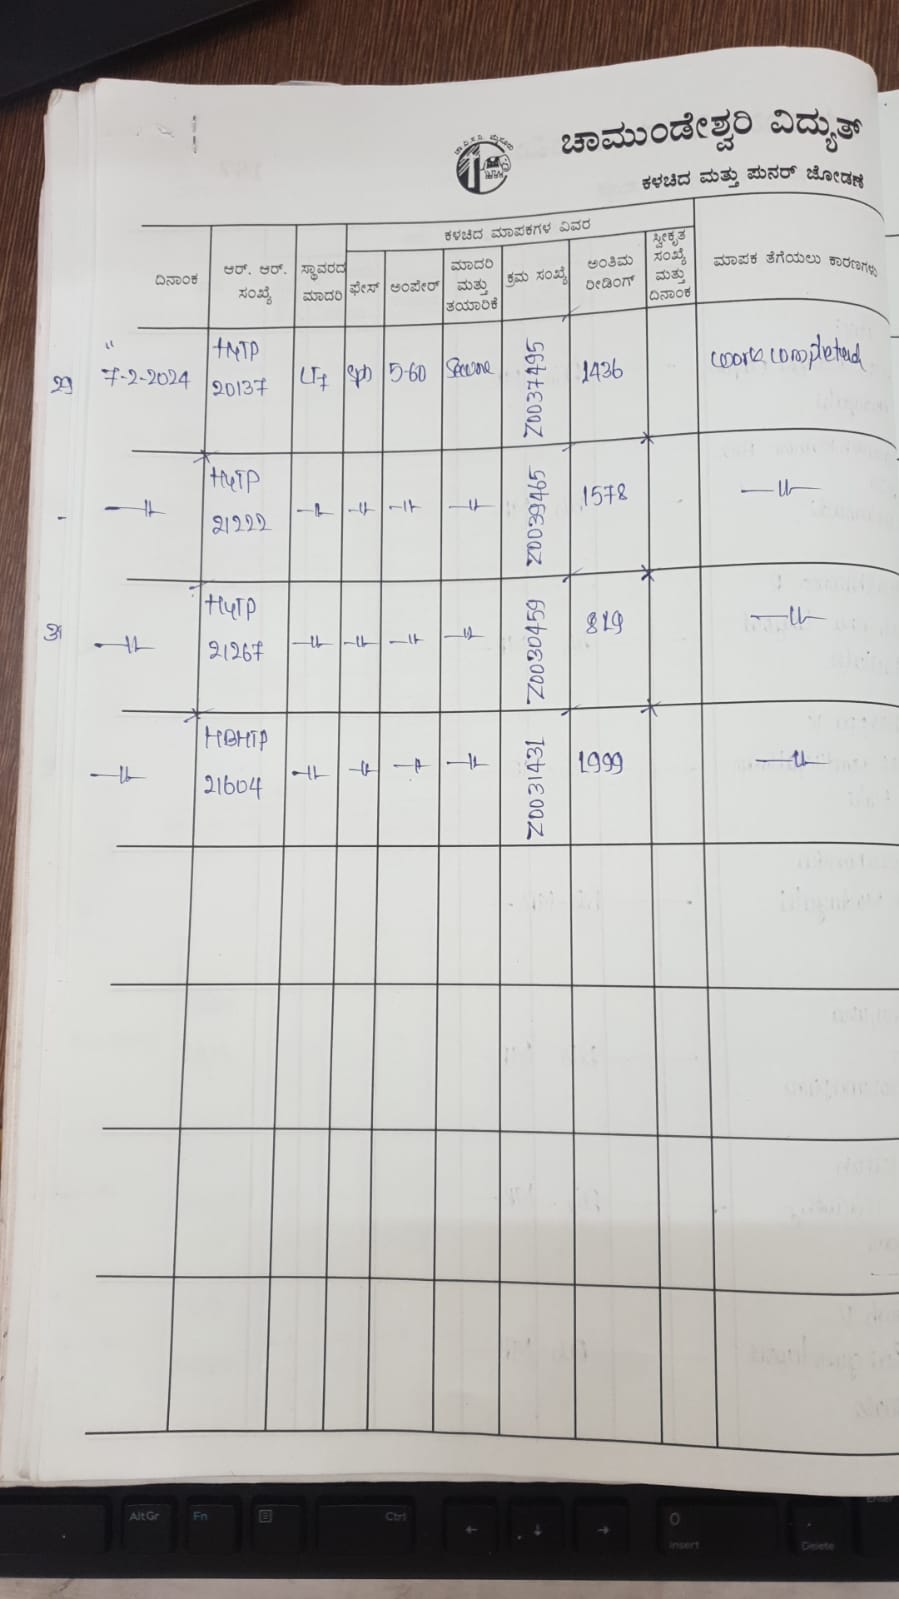 ಚಾಮುಂಡೇಶ್ವರಿ ವಿದ್ಯುತ್
ಕಳಚಿದ ಮತ್ತು ಪುನರ್ ಜೋಡಣೆ
ಕಳಚಿದ ಮಾಪಕಗಳ ವಿವರ
ದಿನಾಂಕ
ಆರ್. ಆರ್.
ಸಂಖ್ಯೆ
ಸ್ಥಾವರದ
ಮಾದರಿ
ಫೇಸ್
ಅಂಪೇರ್
ಮಾದರಿ
ಮತ್ತು
ತಯಾರಿಕೆ
ಕ್ರಮ ಸಂಖ್ಯೆ
ಅಂತಿಮ
ರೀಡಿಂಗ್
ಸ್ವೀಕೃತ
ಸಂಖ್ಯೆ
ಮತ್ತು
ದಿನಾಂಕ
ಮಾಪಕ ತೆಗೆಯಲು ಕಾರಣಗಳು
29 7-2-2024 HyTP 20137 LT7 5-60 Secure Z0037495 1436 work completed
HyTP 21222 Z0039465 1578
HyTP 21267 Z0030459 819
HBHTP 21604 Z0031431 1999
AltGr
Fn
Ctrl
0
Insert
.
Delete
Enter